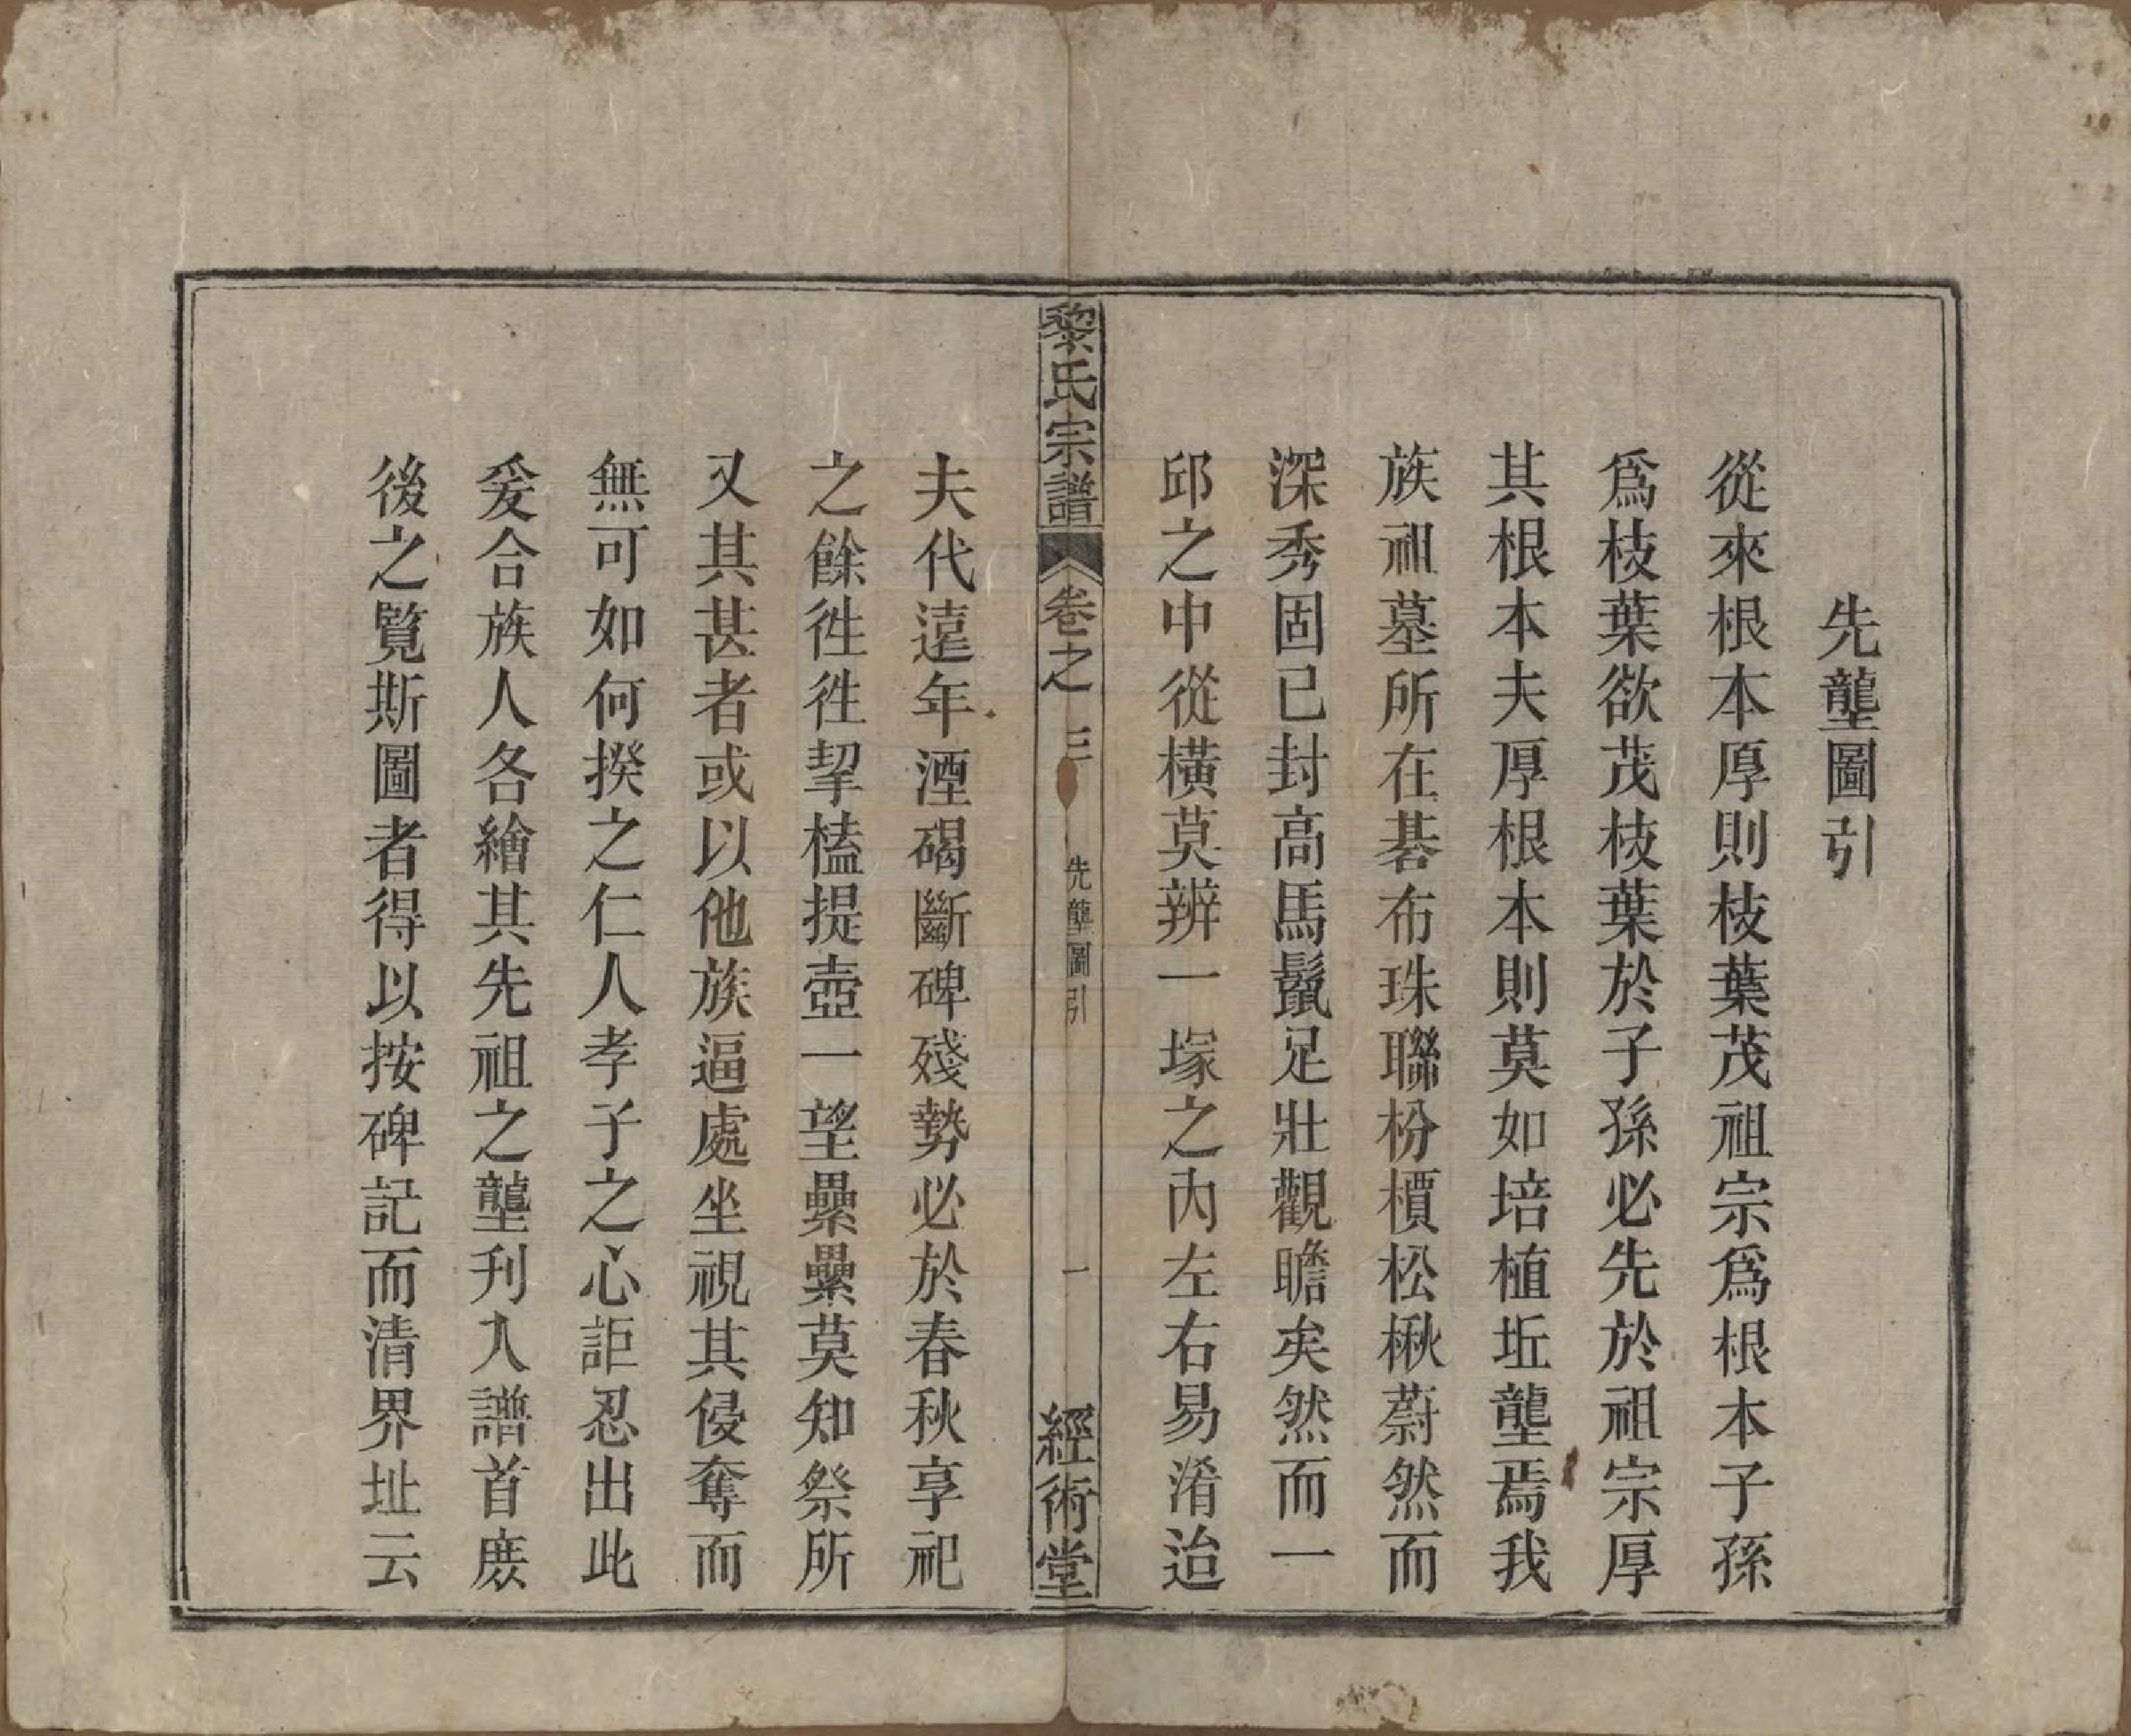 先壟圖引
從來根本厚則枝葉茂祖宗爲根本子孫
爲枝葉欲茂枝葉於子孫必先於祖宗厚
其根本夫厚根本則莫如培植坵壟焉我
族祖墓所在碁布珠聯枌檟松楸蔚然而
深秀固已封高馬鬣足壯觀瞻矣然而一
邱之中從橫莫辨一塚之內左右易淆迨
黎氏宗譜
卷之三
先壟圖引
一
經術堂
夫代遠年湮碣斷碑殘勢必於春秋享祀
之餘徃徃挈榼提壺一望纍纍莫知祭所
又其甚者或以他族逼處坐視其侵奪而
無可如何揆之仁人孝子之心詎忍出此
爰合族人各繪其先祖之壟刋入譜首庻
後之覽斯圖者得以按碑記而清界址云